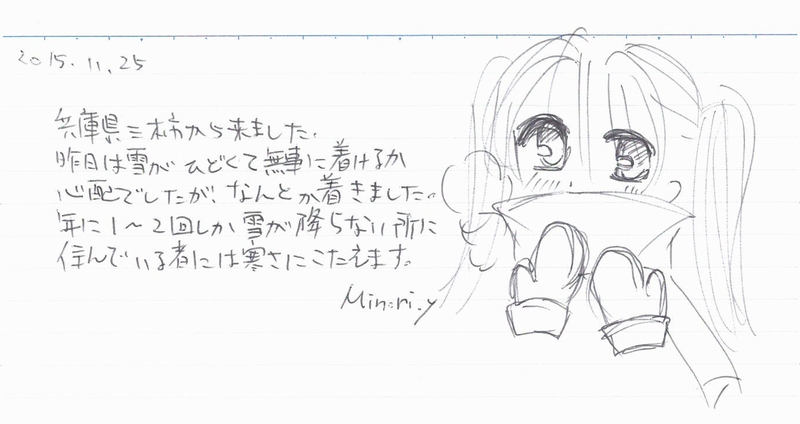 2015.11.25
兵庫県三木市から来ました。
昨日は雪がひどくて無事に着けるか
心配でしたが、なんとか着きました。
年に1〜2回しか雪が降らない所に
住んでいる者には寒さにこたえます。
Minori.y